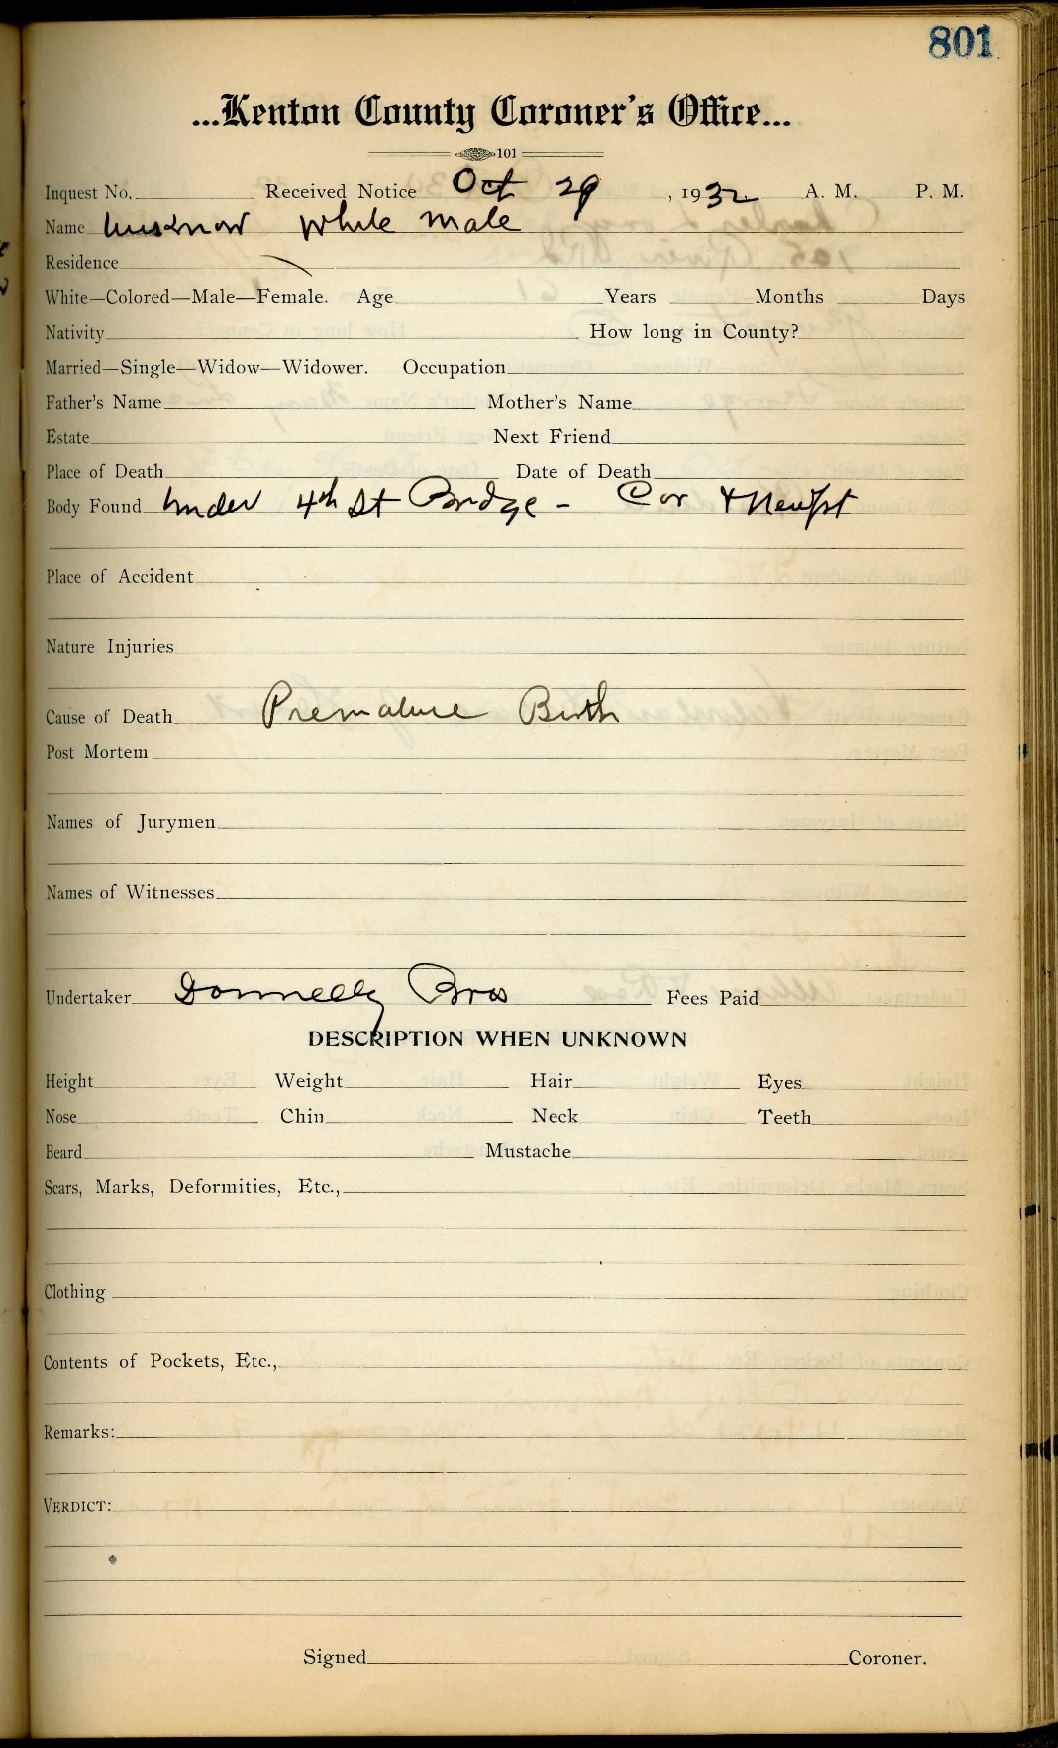 801
...Kenton County Coroner's Office...
101
Inquest No. Received Notice Oct 29, 1932 A. M. P. M.
Name Unknow White Male
Residence
White—Colored—Male—Female. Age Years Months Days
Nativity How long in County?
Married—Single—Widow—Widower. Occupation
Father's Name Mother's Name
Estate Next Friend
Place of Death Date of Death
Body Found Under 4th St Bridge - Cov & Newpt
Place of Accident
Nature Injuries
Cause of Death Premature Birth
Post Mortem
Names of Jurymen
Names of Witnesses
Undertaker Donnelly Bros Fees Paid
DESCRIPTION WHEN UNKNOWN
Height Weight Hair Eyes
Nose Chin Neck Teeth
Beard Mustache
Scars, Marks, Deformities, Etc.,
Clothing
Contents of Pockets, Etc.,
Remarks:
VERDICT:
Signed Coroner.